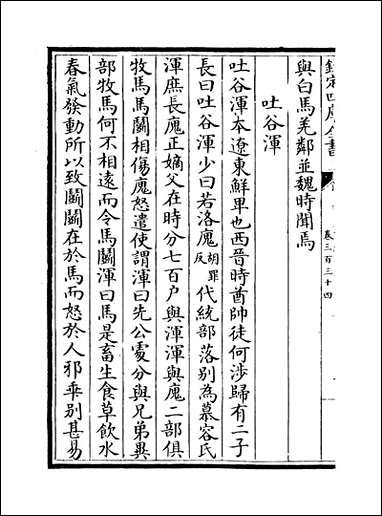 欽定四庫全書
卷三百三十四
與白馬羌鄰並魏時聞焉
吐谷渾
吐谷渾本遼東鮮卑也西晉時酋帥徒何涉歸有二子
長曰吐谷渾少曰若洛廆胡罪反代統部落別為慕容氏
渾庶長廆正嫡父在時分七百户與渾渾與廆二部俱
牧馬馬鬭相傷廆怒遣使謂渾曰先公處分與兄弟異
部牧馬何不相遠而令馬鬭渾曰馬是畜生食草飲水
春氣發動所以致鬭鬭在於馬而怒於人邪乖别甚易